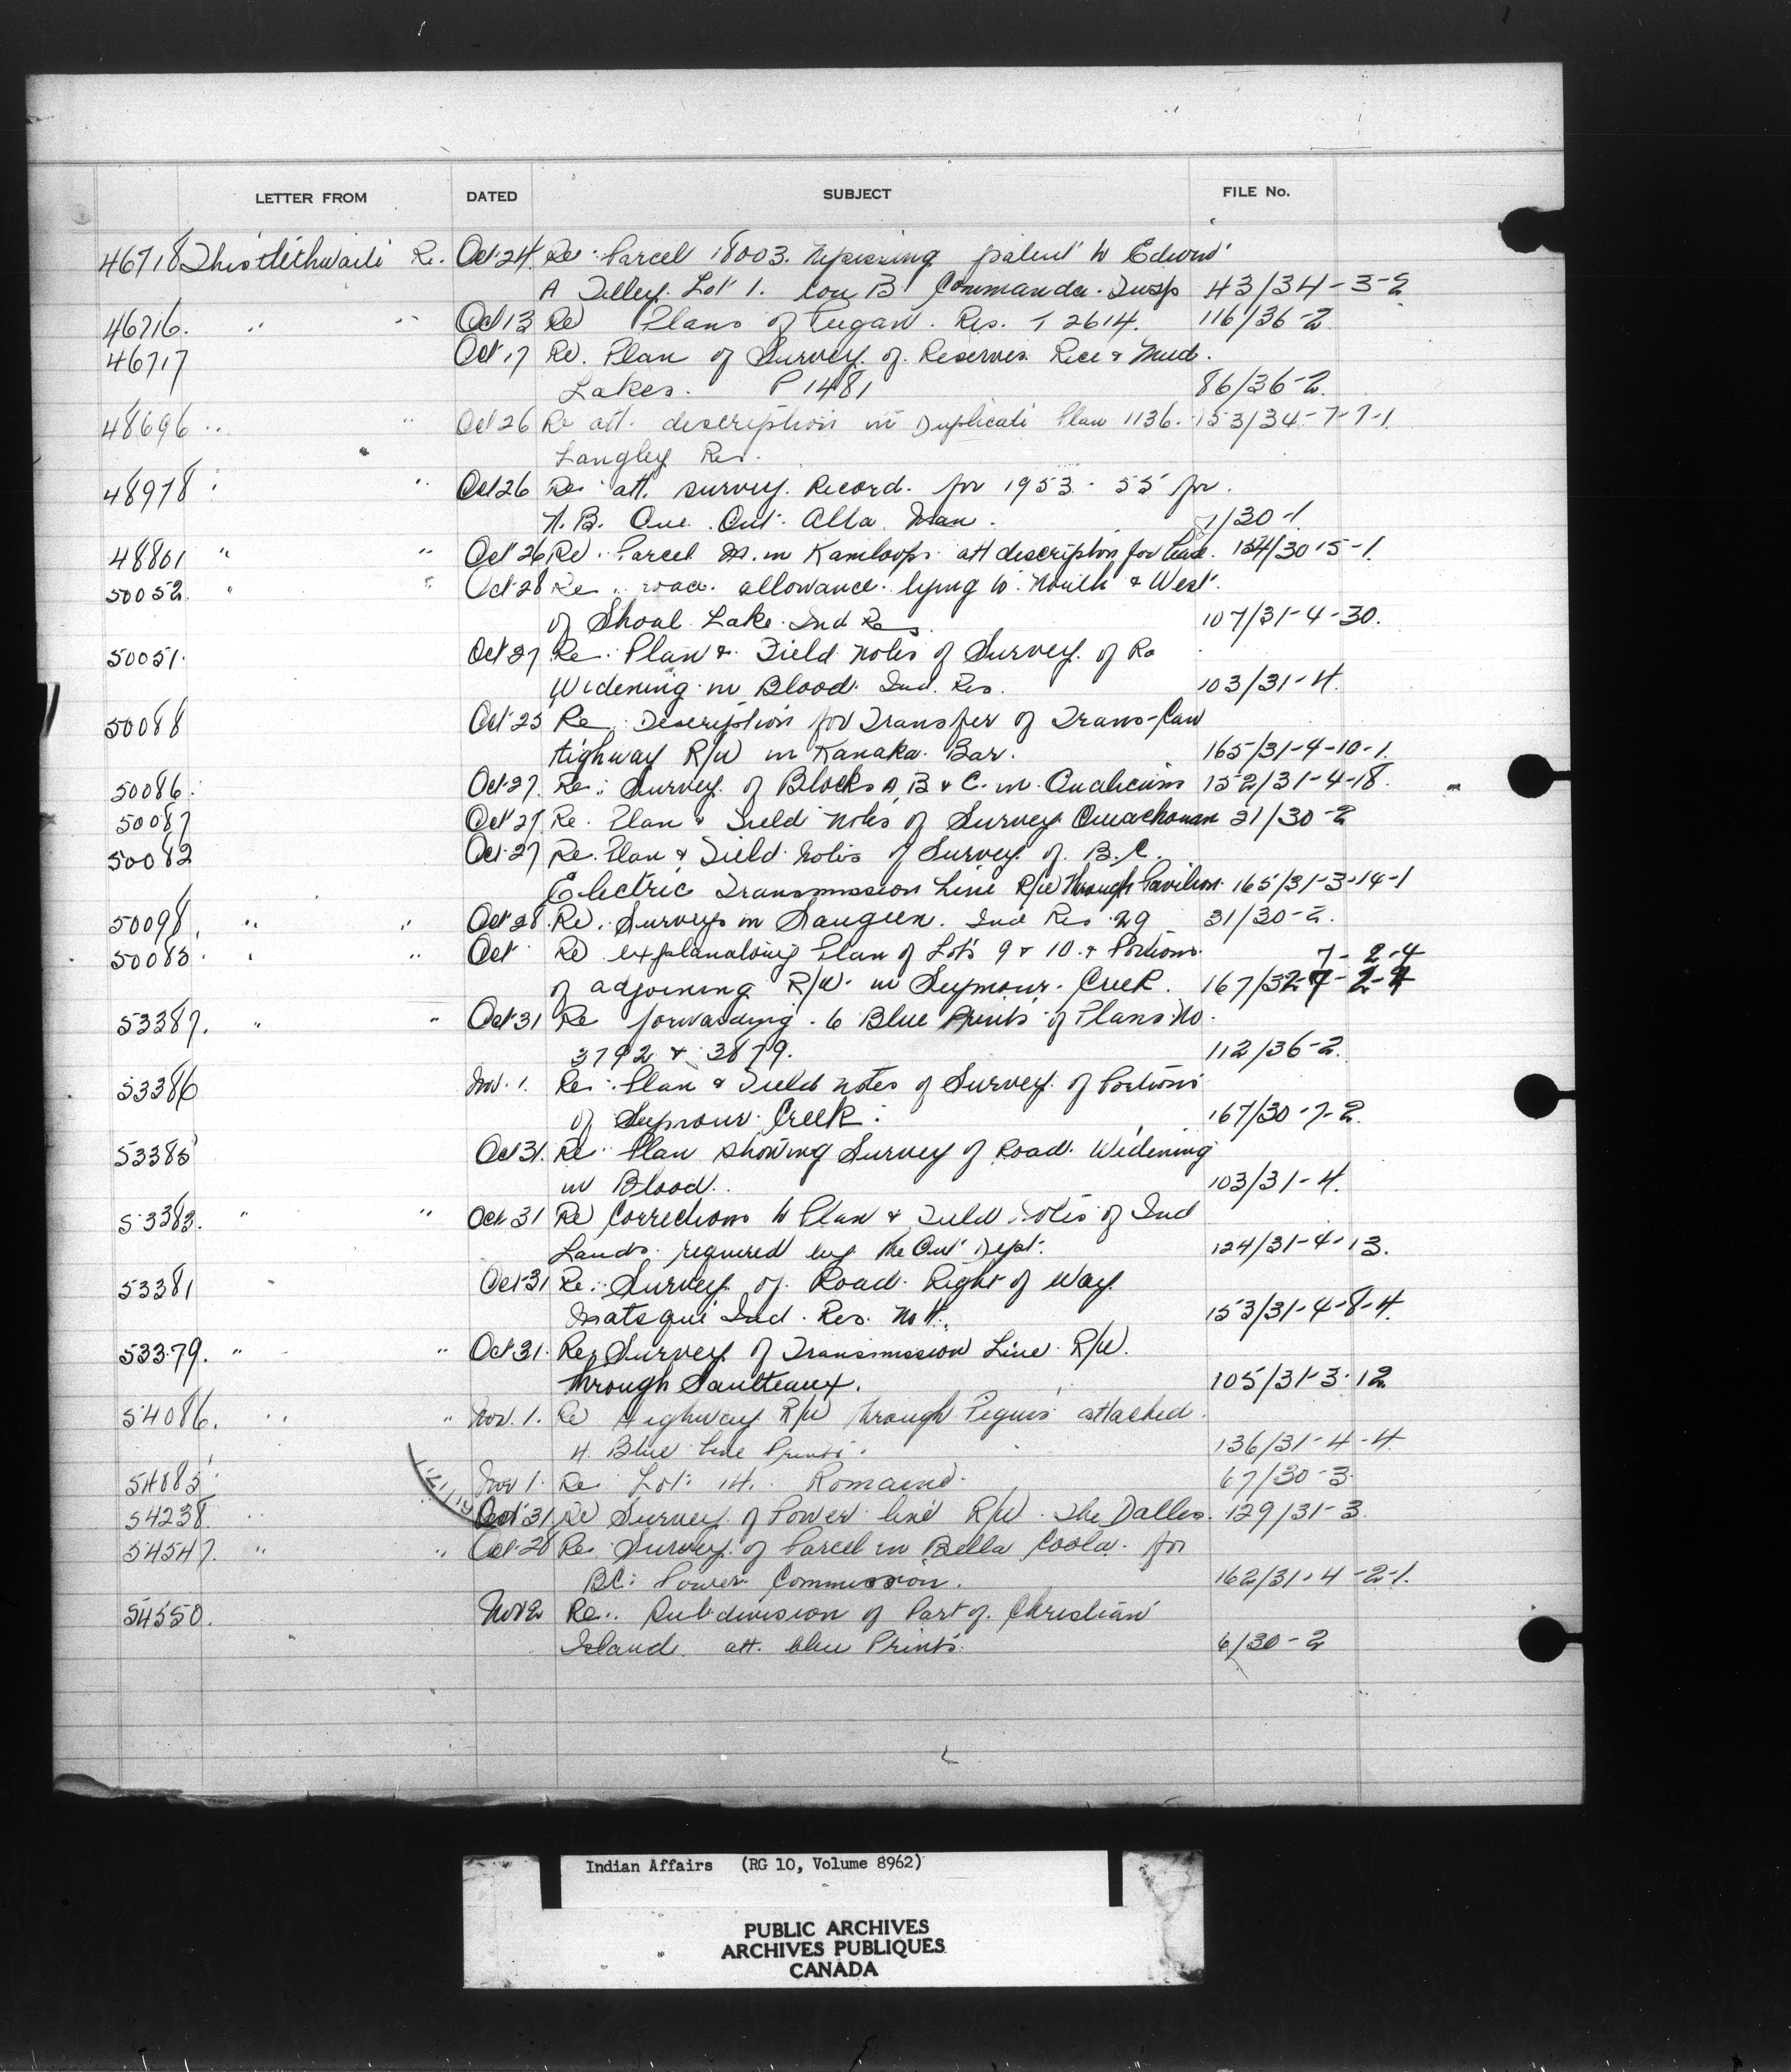 LETTER FROM DATED SUBJECT FILE No.
46718 Thistlethwaite R. Oct 24 Re: Parcel 18003. Nipissing patent to Edwin
A Tilley. Lot 1. Con B Commanda. Twsp 43/34-3-2
46716. " " Oct 13 Re Plans of Peigan. Res. T 2614. 116/36-2
46717 Oct 17 Re. Plan of Survey of Reserves Rice & Mud.
Lakes. P 1481 86/36-2.
48696 " " Oct 26 Re att. description in Duplicate Plan 1136. 153/34-7-7-1.
Langley Res.
48978 " " Oct 26 Re att. survey. Record. for 1953-55 for.
N.B. Que. Ont. Alta. Man. 1/30-1
48801 " " Oct 26 Re. Parcel M. in Kamloops. att description for Lease. 154/30-5-1.
50052. " " Oct 28 Re. road. allowance. lying to North & West.
of Shoal Lake Ind Res. 107/31-4-30.
50051. Oct 27 Re. Plan & Field Notes of Survey of Rd
Widening in Blood. Ind. Res. 103/31-4.
50088 Oct 25 Re. Description for Transfer of Trans-Can
Highway R/W in Kanaka Bar. 165/31-4-10-1.
50086. Oct 27. Re: Survey of Blocks A, B & C. in Qualicum 152/31-4-18.
50087 Oct 27 Re. Plan & Field Notes of Survey Ouiachouan 31/30-2
50082 Oct 27 Re. Plan & Field Notes of Survey of B.C.
Electric Transmission Line R/W through Pavilion. 165/31-3-14-1
50098. " " Oct 28. Re. Surveys in Saugeen. Ind Res 29 31/30-2.
50083. " " Oct Re explanatory Plan of Lots 9 & 10. & Portions. 7-2-4
of adjoining R/W. in Seymour. Creek. 167/32
53387. " " Oct 31 Re forwarding. 6 Blue Prints of Plans No.
3792 & 3879. 112/36-2.
53386 Nov. 1. Re: Plan & Field notes of Survey of Portions
of Seymour Creek. 167/30-7-2.
53385 Oct 31. Re: Plan showing Survey of Road. Widening
in Blood. 103/31-4.
53383. " " Oct 31 Re Corrections to Plan & Field Notes of Ind
Lands. required by the Ont Dept. 124/31-4-13.
53381 " Oct 31 Re: Survey of Road Right of Way
Matsqui Ind. Res. No 4. 153/31-4-8-4.
53379. " " Oct 31. Re; Survey of Transmission Line R/W.
through Saulteaux. 105/31-3-12
54086. " " Nov. 1. Re Highway R/W through Peguis attached.
4. Blue line Prints. 136/31-4-4.
54085 Nov 1. Re Lot: 14. Romaine. 67/30-3.
54238. " Oct 31 Re Survey of Power line R/W. The Dalles. 129/31-3.
54547. " " Oct 28 Re Survey of Parcel in Bella Coola. for
BC. Power Commission. 162/31-4-2-1.
54550. Nov 2 Re: Subdivision of Part of Christian
Island. att. blue Prints. 6/30-2
Indian Affairs (RG 10, Volume 8962)
PUBLIC ARCHIVES
ARCHIVES PUBLIQUES
CANADA